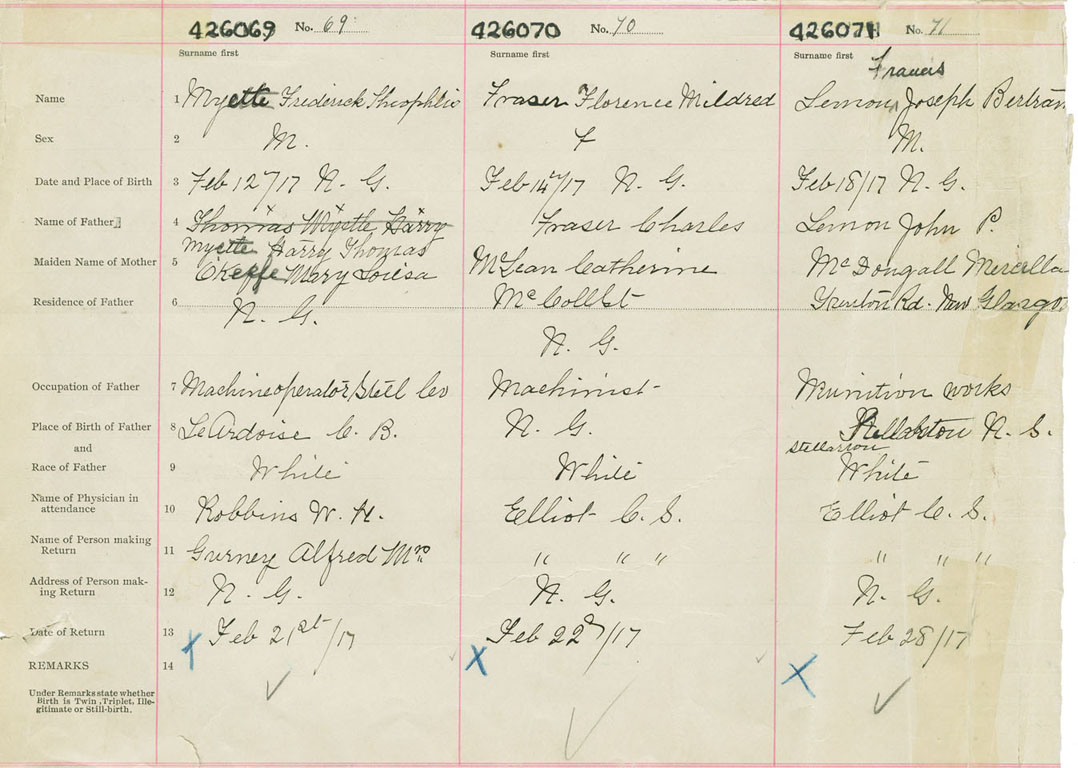 426069 No. 69 426070 No. 70 426071 No. 71
Surname first Surname first Surname first
Francis
Name 1 Myette Frederick Theophlis Fraser Florence Mildred Lemon Joseph Bertram
Sex 2 M. F M.
Date and Place of Birth 3 Feb 12"/17 N. G. Feb 14"/17 N. G. Feb 18/17 N. G.
Name of Father 4 Thomas Myette Harry Fraser Charles Lemon John P.
Myette Harry Thomas
Maiden Name of Mother 5 Okeffe Mary Louisa McLean Catherine McDougall
Residence of Father 6 N. G. McColl St Trenton Rd. New Glasgow
N. G.
Occupation of Father 7 Machine operator/Steel Machinist Munition works
Place of Birth of Father 8 LeArdoise C. B. N. G. Stellarton N. S.
and
stellarton
Race of Father 9 White White White
Name of Physician in
attendance 10 Robbins W. H. Elliot C. S. Elliot C. S.
Name of Person making
Return 11 Gurney Alfred Mrs " " " " " "
Address of Person mak-
ing Return 12 N. G. N. G. N. G.
Date of Return 13 Feb 21st/17 Feb 22d/17 Feb 28/17
REMARKS 14 X X X
Under Remarks state whether
Birth is Twin, Triplet, Ille-
gitimate or Still-birth.